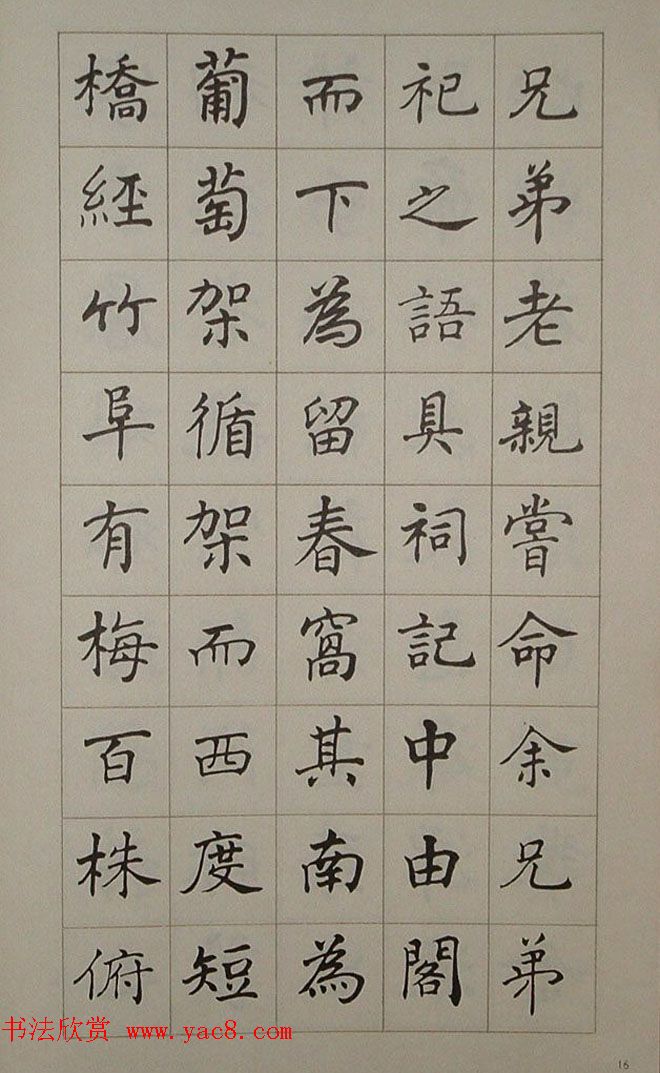 兄弟老親嘗命余兄弟
祀之語具祠記中由閣
而下為留春窩其南為
葡萄架循架而西度短
橋經竹阜有梅百株俯
书法欣赏 www.yac8.com
16